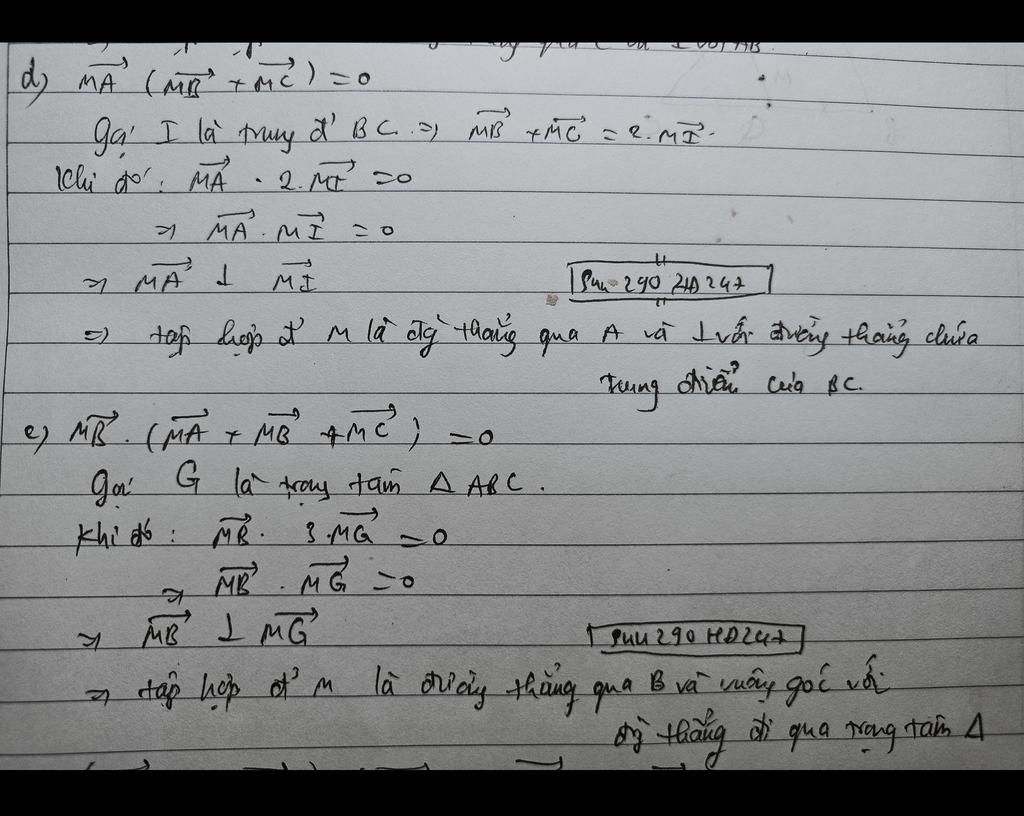 d) MA→ (MB→ + MC→) = 0
Gọi I là trung đ' BC. ⇒ MB→ + MC→ = 2.MI→.
Khi đó: MA→ . 2.MI→ = 0
⇒ MA→ . MI→ = 0
⇒ MA→ ⊥ MI→
⇒ tập hợp đ' M là đg` thẳng qua A và ⊥ với đường thẳng chứa
trung điểm của BC.
e) MB→ . (MA→ + MB→ + MC→) = 0
Gọi G là trọng tâm Δ ABC.
Khi đó: MB→ . 3.MG→ = 0
⇒ MB→ . MG→ = 0
⇒ MB→ ⊥ MG→
⇒ tập hợp đ' M là đường thẳng qua B và vuông góc với
đg` thẳng đi qua trọng tâm Δ